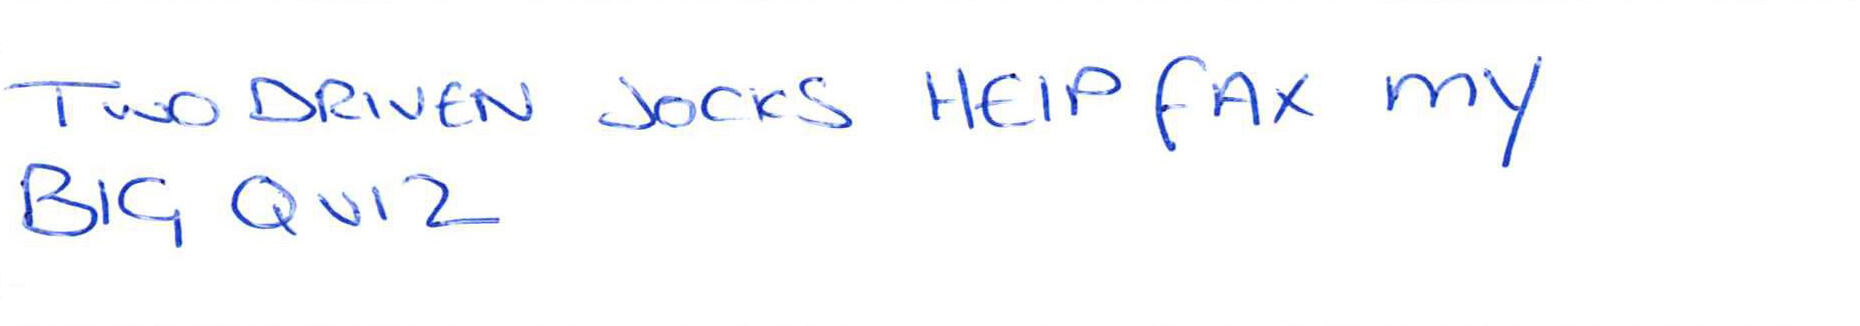 TWO DRIVEN JOCKS HElP FAX MY
BIG QUIZ